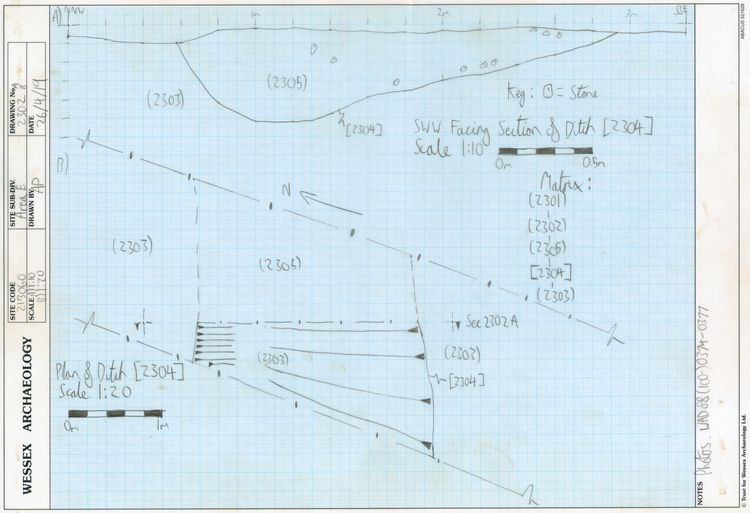 A)
NNW
1m
2m
3m
SSE
(2305)
(2303)
[2304]
Key: = Stone
SWW Facing Section of Ditch [2304]
Scale 1:10
0m 0.5m
B)
N
Matrix:
(2301)
(2302)
(2305)
[2304]
(2303)
(2303)
(2305)
Sec 2302A
(2303)
(2303)
[2304]
Plan of Ditch [2304]
Scale 1:20
0m 1m
DRAWING No.
2302
DATE
26/4/19
SITE SUB-DIV.
Area E
DRAWN BY
AP
SITE CODE
213060
SCALE A) 1:10
B) 1:20
WESSEX ARCHAEOLOGY
NOTES
Photos: WAD08(100-)0374-0377
© Trust for Wessex Archaeology Ltd.
ABACUS 521626